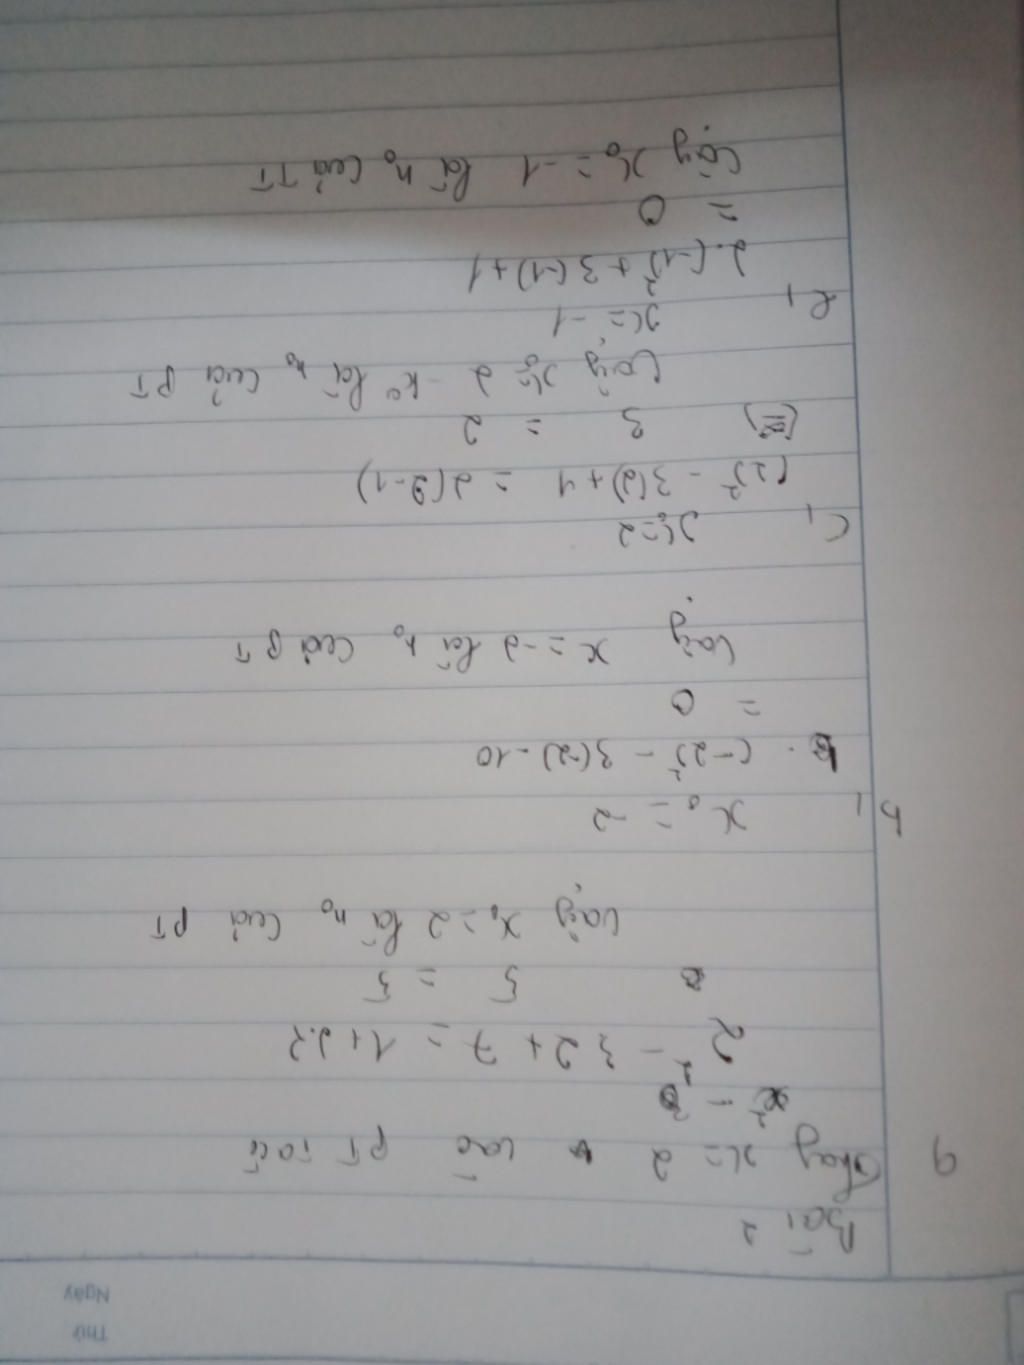 Thứ
Ngày
Bài 2
a Thay x = 2 vào PT ta có
x² -
2² - 3.2 + 7 = 1 + 2.2
5 = 5
Vậy x₀ = 2 là n₀ của PT
b, x₀ = -2
(-2)² - 3(-2) - 10
= 0
Vậy x = -2 là n₀ của PT
c, x₀ = 2
(2)² - 3(2) + 1 = 2(2-1)
3 = 2
Vậy x₀ = 2 k° là n₀ của PT
x₀ = -1
2.(-1)² + 3(-1) + 1
= 0
Vậy x₀ = -1 là n₀ của PT